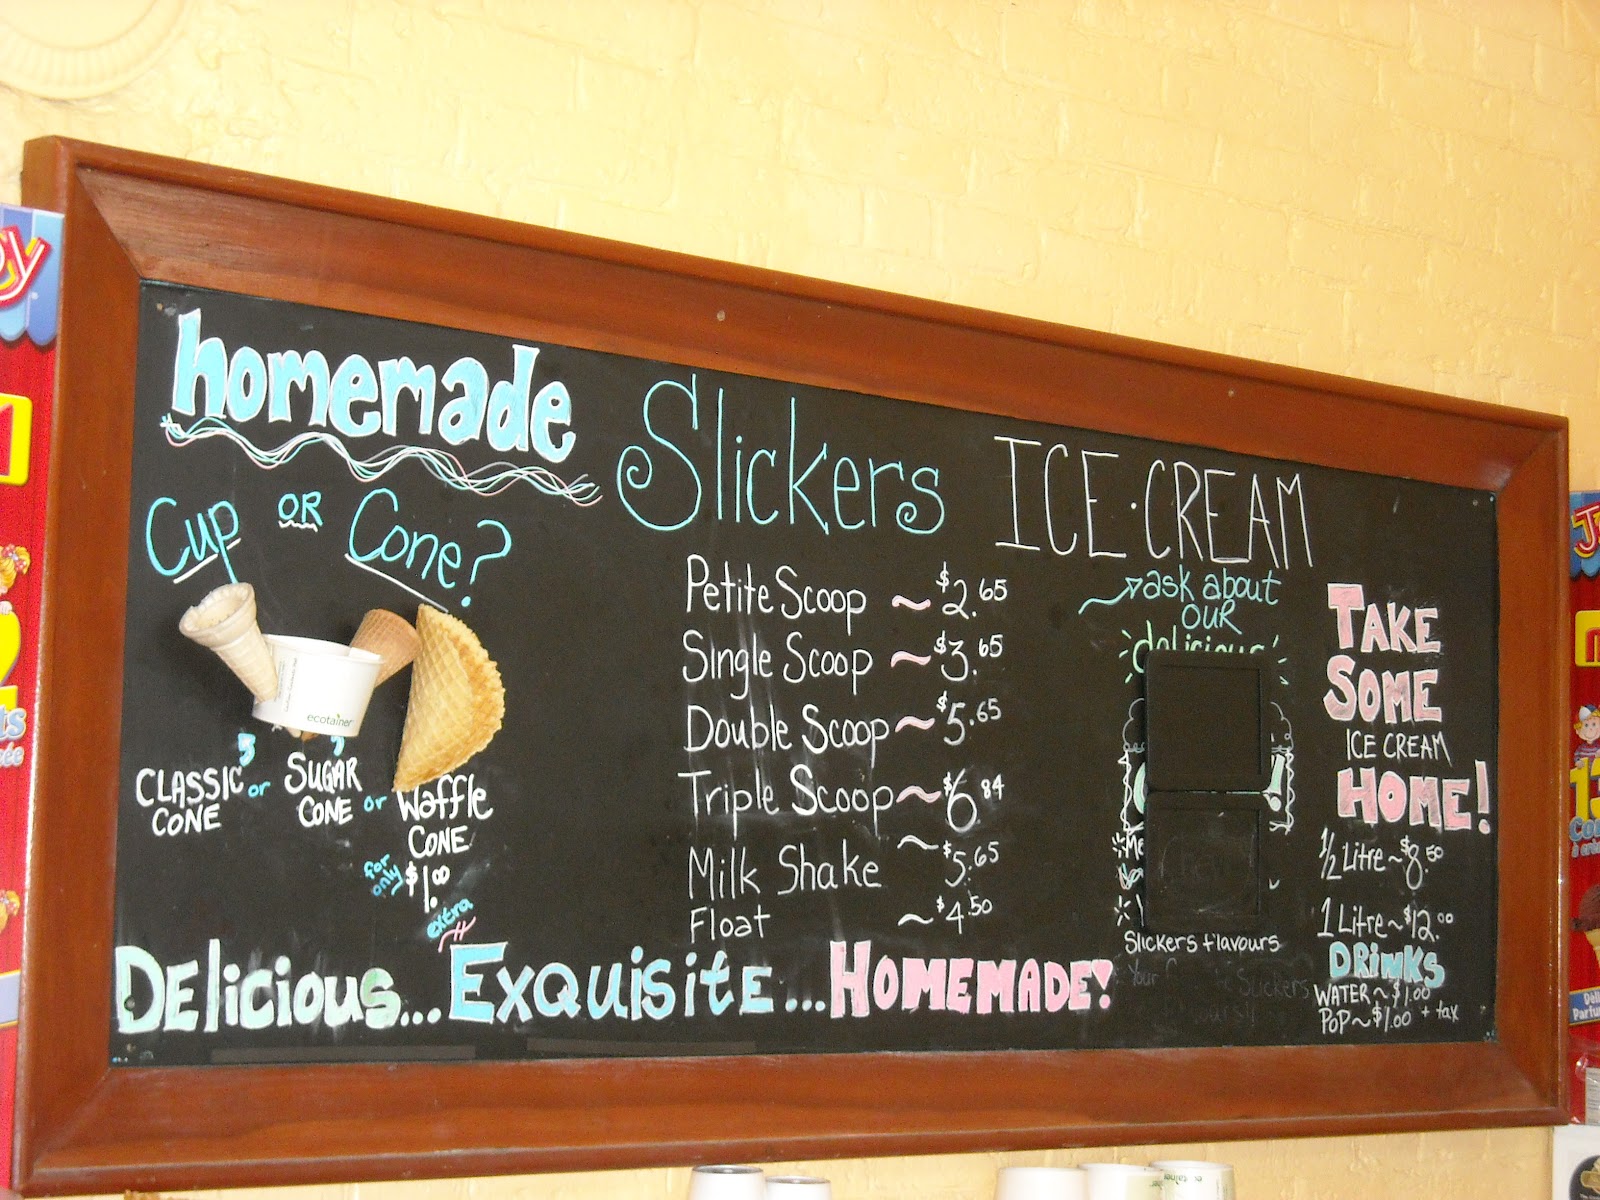 homemade
Slickers ICE·CREAM
Cup OR Cone?
ecotainer
CLASSIC CONE or SUGAR CONE or Waffle CONE
for only $1.00 extra
Petite Scoop ~ $2.65
Single Scoop ~ $3.65
Double Scoop ~ $5.65
Triple Scoop ~ $6.84
Milk Shake ~ $5.65
Float ~ $4.50
ask about
OUR
delicious
Slickers flavours
TAKE
SOME
ICE CREAM
HOME!
1/2 Litre ~ $8.50
1 Litre ~ $12.00
DRINKS
WATER ~ $1.00
POP ~ $1.00 + tax
Delicious... Exquisite... Homemade!